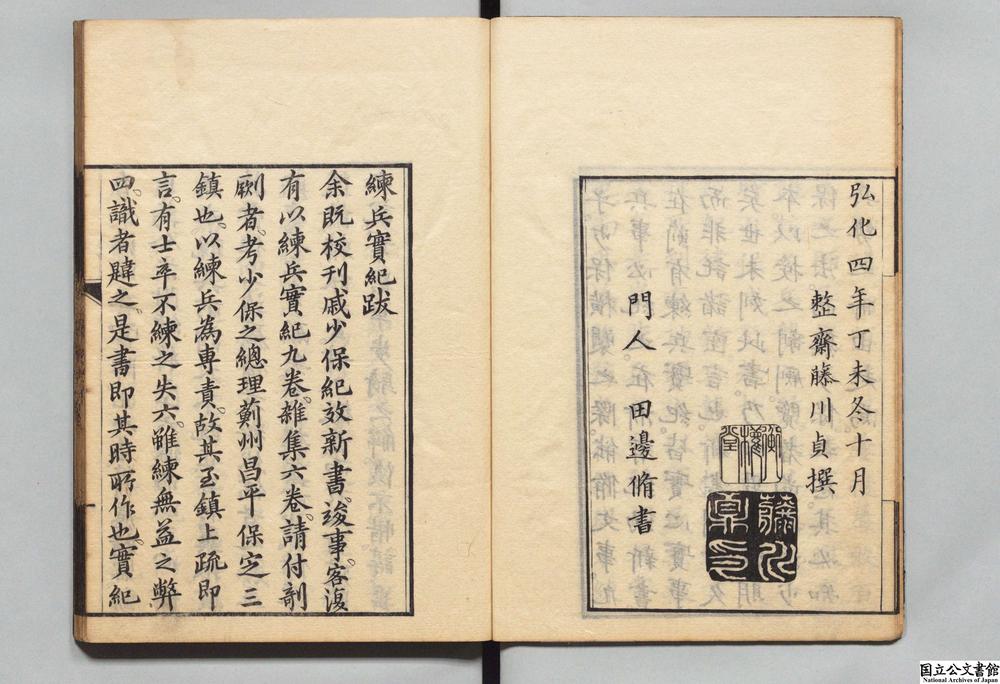 弘化四年丁未冬十月
整齋藤川貞撰
門人田邊脩書
練兵實紀跋
余既校刊戚少保紀效新書。竣事。客復
有以練兵實紀九卷。雜集六卷。請付剞
劂者。考少保之總理薊州昌平保定三
鎮也。以練兵為專責。故其至鎮上疏即
言。有士卒不練之失六。雖練無益之弊
四。識者韙之。是書即其時所作也。實紀
国立公文書館
National Archives of Japan